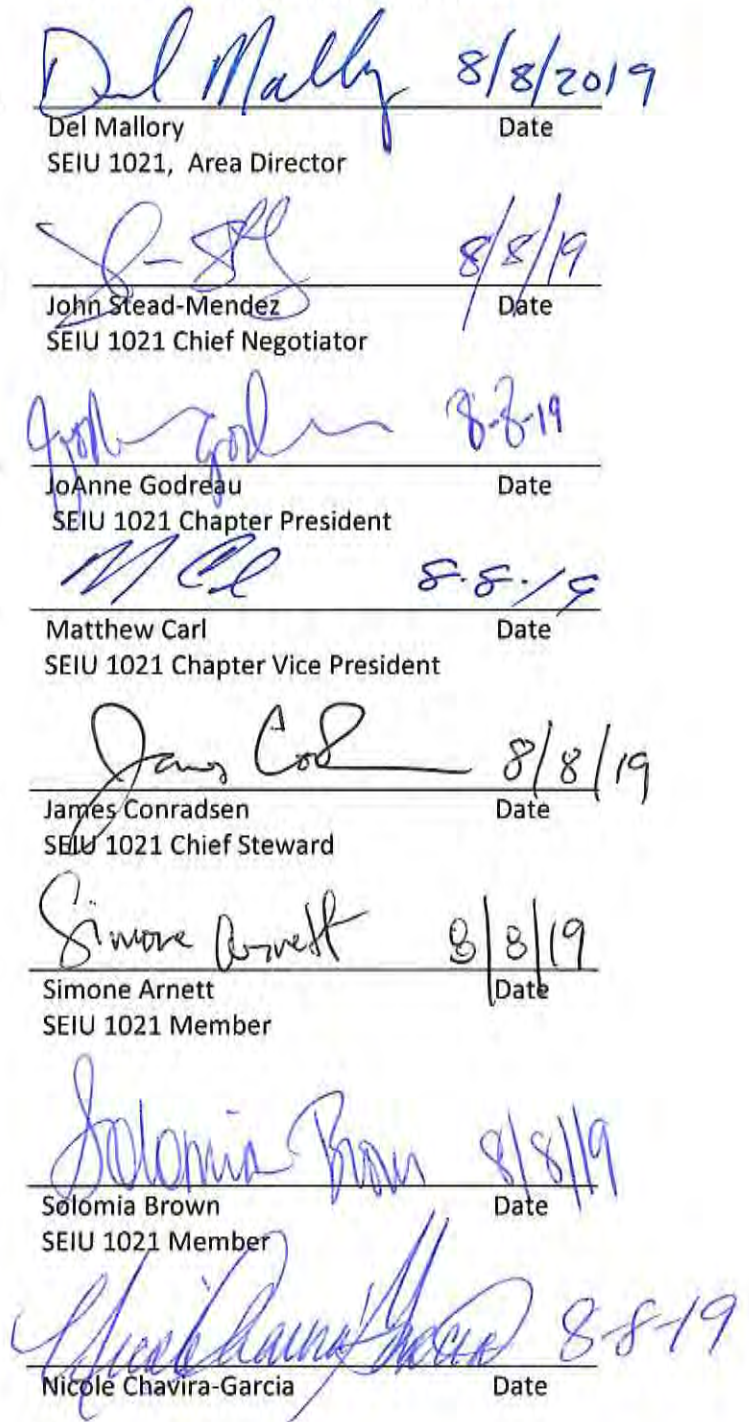 Del Mally 8/8/2019
Del Mallory Date
SEIU 1021, Area Director
8/8/19
John Stead-Mendez Date
SEIU 1021 Chief Negotiator
8-8-19
JoAnne Godreau Date
SEIU 1021 Chapter President
8.8.19
Matthew Carl Date
SEIU 1021 Chapter Vice President
James 8/8/19
James Conradsen Date
SEIU 1021 Chief Steward
Simone Arnett 8/8/19
Simone Arnett Date
SEIU 1021 Member
Solomia Brown 8/8/19
Solomia Brown Date
SEIU 1021 Member
Nicole Chavira-Garcia 8-8-19
Nicole Chavira-Garcia Date